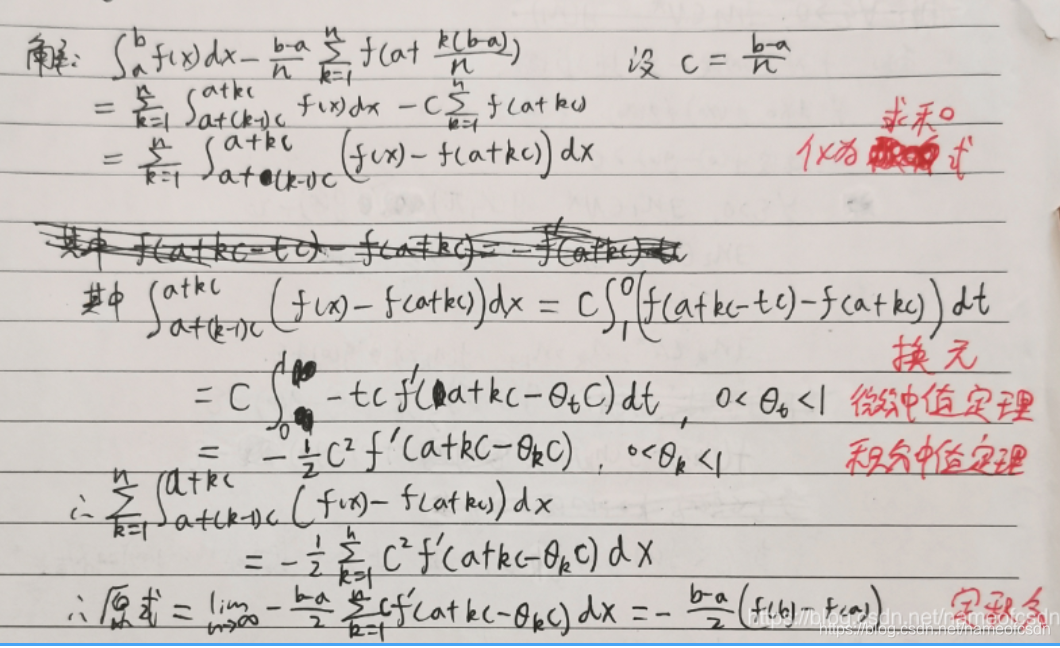 解: ∫_a^b f(x)dx - (b-a)/n ∑_{k=1}^n f(a+ k(b-a)/n) 设 c = (b-a)/n
= ∑_{k=1}^n ∫_{a+(k-1)c}^{a+kc} f(x)dx - C∑_{k=1}^n f(a+kc)
= ∑_{k=1}^n ∫_{a+(k-1)c}^{a+kc} (f(x) - f(a+kc)) dx 求和
式
其中 f(a+kc-tc) - f(a+kc) = -f'(a+kc)tc
其中 ∫_{a+(k-1)c}^{a+kc} (f(x) - f(a+kc))dx = C∫_1^0 (f(a+kc-tc) - f(a+kc)) dt
换元
= C ∫_0^1 -tc f'(a+kc-θ_tC) dt 0<θ_t<1 微分中值定理
= -1/2 C² f'(a+kc-θ_kC), 0<θ_k<1 积分中值定理
∴ ∑_{k=1}^n ∫_{a+(k-1)c}^{a+kc} (f(x) - f(a+kc)) dx
= -1/2 ∑_{k=1}^n C² f'(a+kc-θ_kC) dx
∴ 原式 = lim_{n→∞} -(b-a)/2 ∑_{k=1}^n c f'(a+kc-θ_kC) dx = -(b-a)/2 (f(b)-f(a)) 定积分
https://blog.csdn.net/nameofcsdn
https://blog.csdn.net/nameofcsdn